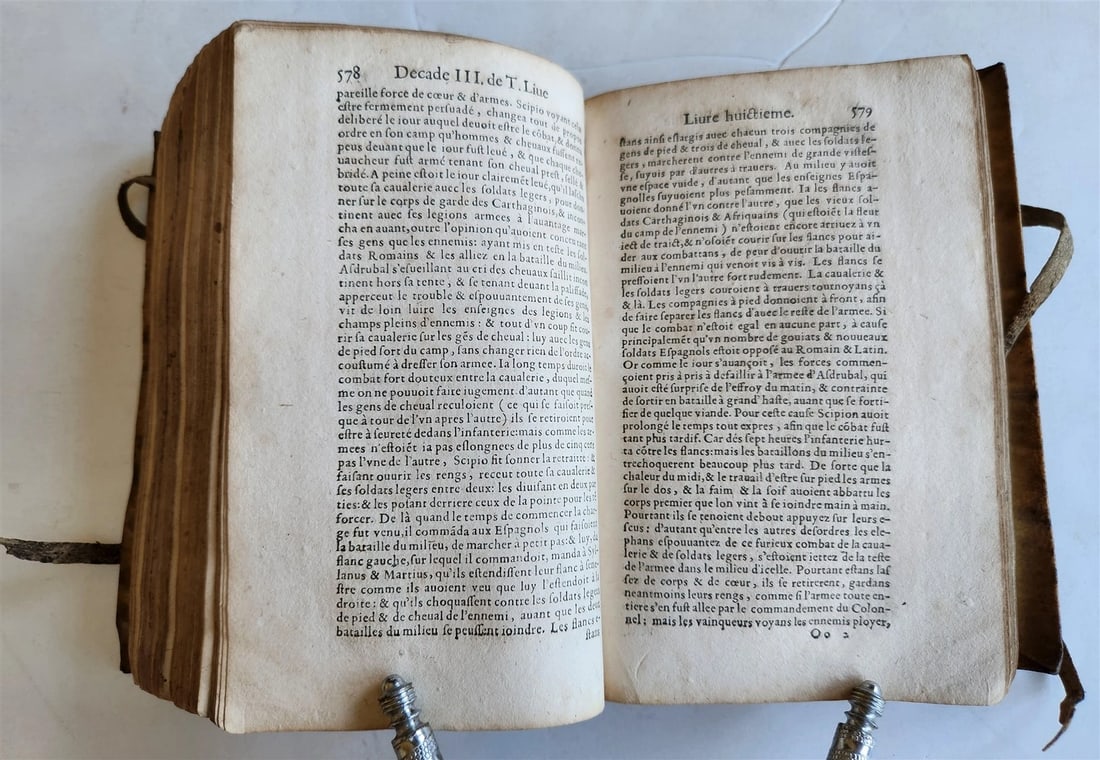 578 Decade III. de T. Liue
pareille force de cœur & d'armes. Scipio voyant cela
eſtre fermement perſuadé, changea tout de propos
deliberé le iour auquel deuoit eſtre le cõbat, & donna
ordre en ſon camp qu'hommes & cheuaux fuſſent
peus deuant que le iour fuſt leué, & que chaque che-
uaucheur fuſt armé tenant ſon cheual preſt, ſellé &
bridé. A peine eſtoit le iour clairemẽt leué, qu'il
toute ſa caualerie auec les ſoldats legers, pour don-
ner ſur le corps de garde des Carthaginois, &
tinent auec ſes legions armees à l'auantage mar-
cha en auant, outre l'opinion qu'auoient
ſes gens que les ennemis: ayant mis en teſte les ſol-
dats Romains & les alliez en la bataille du milieu.
Aſdrubal s'eſueillant au cri des cheuaux ſaillit incon-
tinent hors ſa tente, & ſe tenant deuant la paliſſade,
apperceut le trouble & eſpouuantement de ſes gens,
vit de loin luire les enſeignes des legions & les
champs pleins d'ennemis: & tout d'vn coup fit cou-
rir ſa caualerie ſur les gẽs de cheual: luy auec les gens
de pied ſort du camp, ſans changer rien de l'ordre ac-
couſtumé à dreſſer ſon armee. Ia long temps duroit le
combat fort douteux entre la caualerie, duquel meſ-
me on ne pouuoit faire iugement. d'autant que quand
les gens de cheual reculoient (ce qui ſe faiſoit preſ-
que à tour de l'vn apres l'autre) ils ſe retiroient pour
eſtre à ſeureté dedans l'infanterie: mais comme les ar-
mees n'eſtoiẽt ia pas eſlongnees de plus de cinq cens
pas l'vne de l'autre, Scipio fit ſonner la retraitte: &
faiſant ouurir les rengs, receut toute ſa caualerie &
ſes ſoldats legers entre deux: les diuiſant en deux par-
ties: & les poſant derriere ceux de la pointe pour les rẽ-
forcer. De là quand le temps de commencer la char-
ge fut venu, il commãda aux Eſpagnols qui faiſoient
la bataille du milieu, de marcher à petit pas: & luy, du
flanc gauche, ſur lequel il commandoit, manda à Syl-
lanus & Martius, qu'ils eſtendiſſent leur flanc à ſene-
ſtre comme ils auoient veu que luy l'eſtendoit à la
droite: & qu'ils choquaſſent contre les ſoldats legers
de pied & de cheual de l'ennemi, auant que les deux
batailles du milieu ſe peuſſent ioindre. Les flancs e-
ſtans
Liure huictieme. 579
ſtans ainſi eſlargis auec chacun trois compagnies de
gens de pied & trois de cheual, & auec les ſoldats le-
gers, marcherent contre l'ennemi de grande viſteſ-
ſe, ſuyuis par d'autres à trauers. Au milieu y auoit
vne eſpace vuide, d'autant que les enſeignes Eſpa-
gnolles ſuyuoient plus peſamment. Ia les flancs a-
uoient donné l'vn contre l'autre, que les vieux ſol-
dats Carthaginois & Afriquains (qui eſtoiẽt la fleur
du camp de l'ennemi) n'eſtoient encore arriuez à vn
iect de traict, & n'oſoiẽt courir ſur les flancs pour ai-
der aux combattans, de peur d'ouurir la bataille du
milieu à l'ennemi qui venoit vis à vis. Les flancs ſe
preſſoient l'vn l'autre fort rudement. La caualerie &
les ſoldats legers couroient à trauers tournoyans çà
& là. Les compagnies à pied donnoient à front, afin
de faire ſeparer les flancs d'auec le reſte de l'armee. Si
que le combat n'eſtoit egal en aucune part, à cauſe
principalemẽt qu'vn nombre de gouiats & nouueaux
ſoldats Eſpagnols eſtoit oppoſé au Romain & Latin.
Or comme le iour s'auançoit, les forces commen-
çoient pris à pris à defaillir à l'armee d'Aſdrubal, qui
auoit eſté ſurpriſe de l'effroy du matin, & contrainte
de ſortir en bataille à grand' haſte, auant que ſe forti-
fier de quelque viande. Pour ceſte cauſe Scipion auoit
prolongé le temps tout expres, afin que le cõbat fuſt
tant plus tardif. Car dés ſept heures l'infanterie hur-
ta cõtre les flancs: mais les bataillons du milieu s'en-
trechoquerent beaucoup plus tard. De ſorte que la
chaleur du midi, & le trauail d'eſtre ſur pied les armes
ſur le dos, & la faim & la ſoif auoient abbattu les
corps premier que lon vint à ſe ioindre main à main.
Pourtant ils ſe tenoient debout appuyez ſur leurs e-
ſcus: d'autant qu'entre les autres deſordres les ele-
phans eſpouuantez de ce furieux combat de la caua-
lerie & de ſoldats legers, s'eſtoient iettez de la teſte
de l'armee dans le milieu d'icelle. Pourtant eſtans laſ
ſez de corps & de cœur, ils ſe retirerent, gardans
neantmoins leurs rengs, comme ſi l'armee toute en-
tiere s'en fuſt allee par le commandement du Colon-
nel: mais les vainqueurs voyans les ennemis ployer,
Oo 2